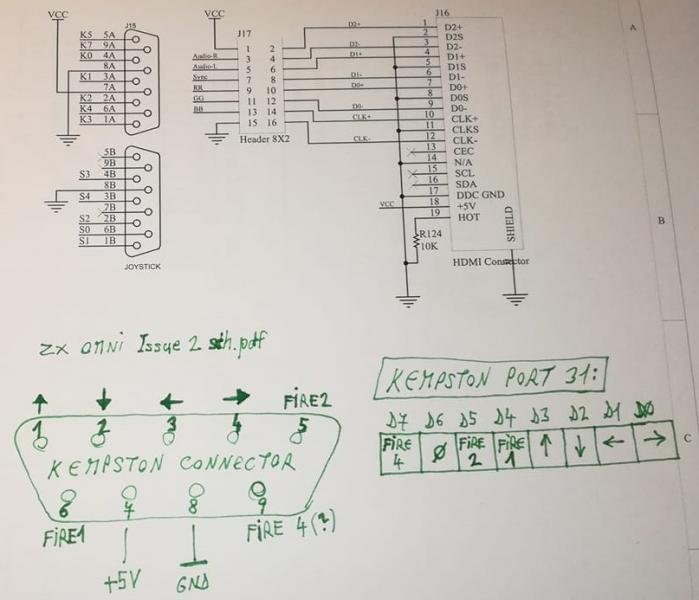 VCC
J15
K5 5A
K7 9A
K0 4A
8A
K1 3A
7A
K2 2A
K4 6A
K3 1A
5B
9B
S3 4B
8B
S4 3B
7B
S2 2B
S0 6B
S1 1B
JOYSTICK
VCC
J17
Audio-R
Audio-L
Sync
RR
GG
BB
1 2
3 4
5 6
7 8
9 10
11 12
13 14
15 16
Header 8X2
D2+
D2-
D1+
D1-
D0+
D0-
CLK+
CLK-
VCC
R124
10K
J16
1 D2+
2 D2S
3 D2-
4 D1+
5 D1S
6 D1-
7 D0+
8 D0S
9 D0-
10 CLK+
11 CLKS
12 CLK-
13 CEC
14 N/A
15 SCL
16 SDA
17 DDC GND
18 +5V
19 HOT
SHIELD
HDMI Connector
A
B
C
ZX OMNI Issue 2 sch.pdf
↑ ↓ ← → FIRE2
1 2 3 4 5
KEMPSTON CONNECTOR
6 7 8 9
FIRE1 FIRE 4(?)
+5V GND
KEMPSTON PORT 31:
D7 D6 D5 D4 D3 D2 D1 D0
FIRE 4 Ø FIRE 2 FIRE 1 ↑ ↓ ← →